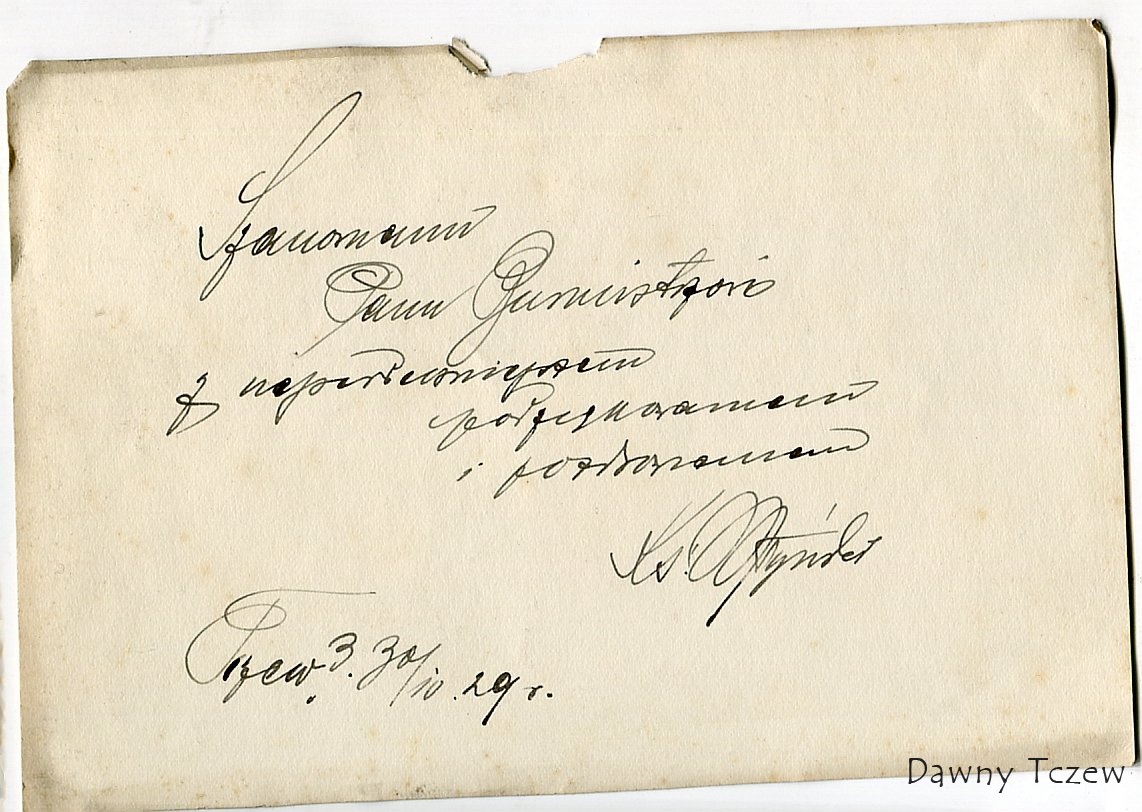 Szanownemu
Panu Burmistrzowi
z najserdeczniejszem
podziękowaniem
i pozdrowieniem
Ks.
Tczew 3. 30/10. 29 r.
Dawny Tczew